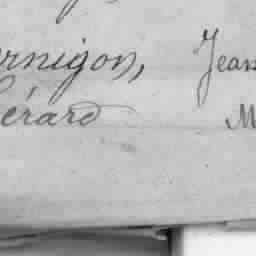 ernigon, Jean
érard M